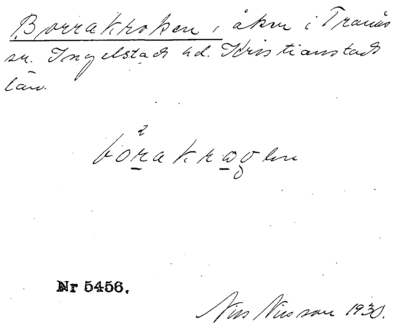 Borrakroken, åker i Tranås
sn. Ingelstads hd. Kristianstads
län.
2
bo̱rakra̱gen
Nr 5456.
Nils Nilsson 1930.